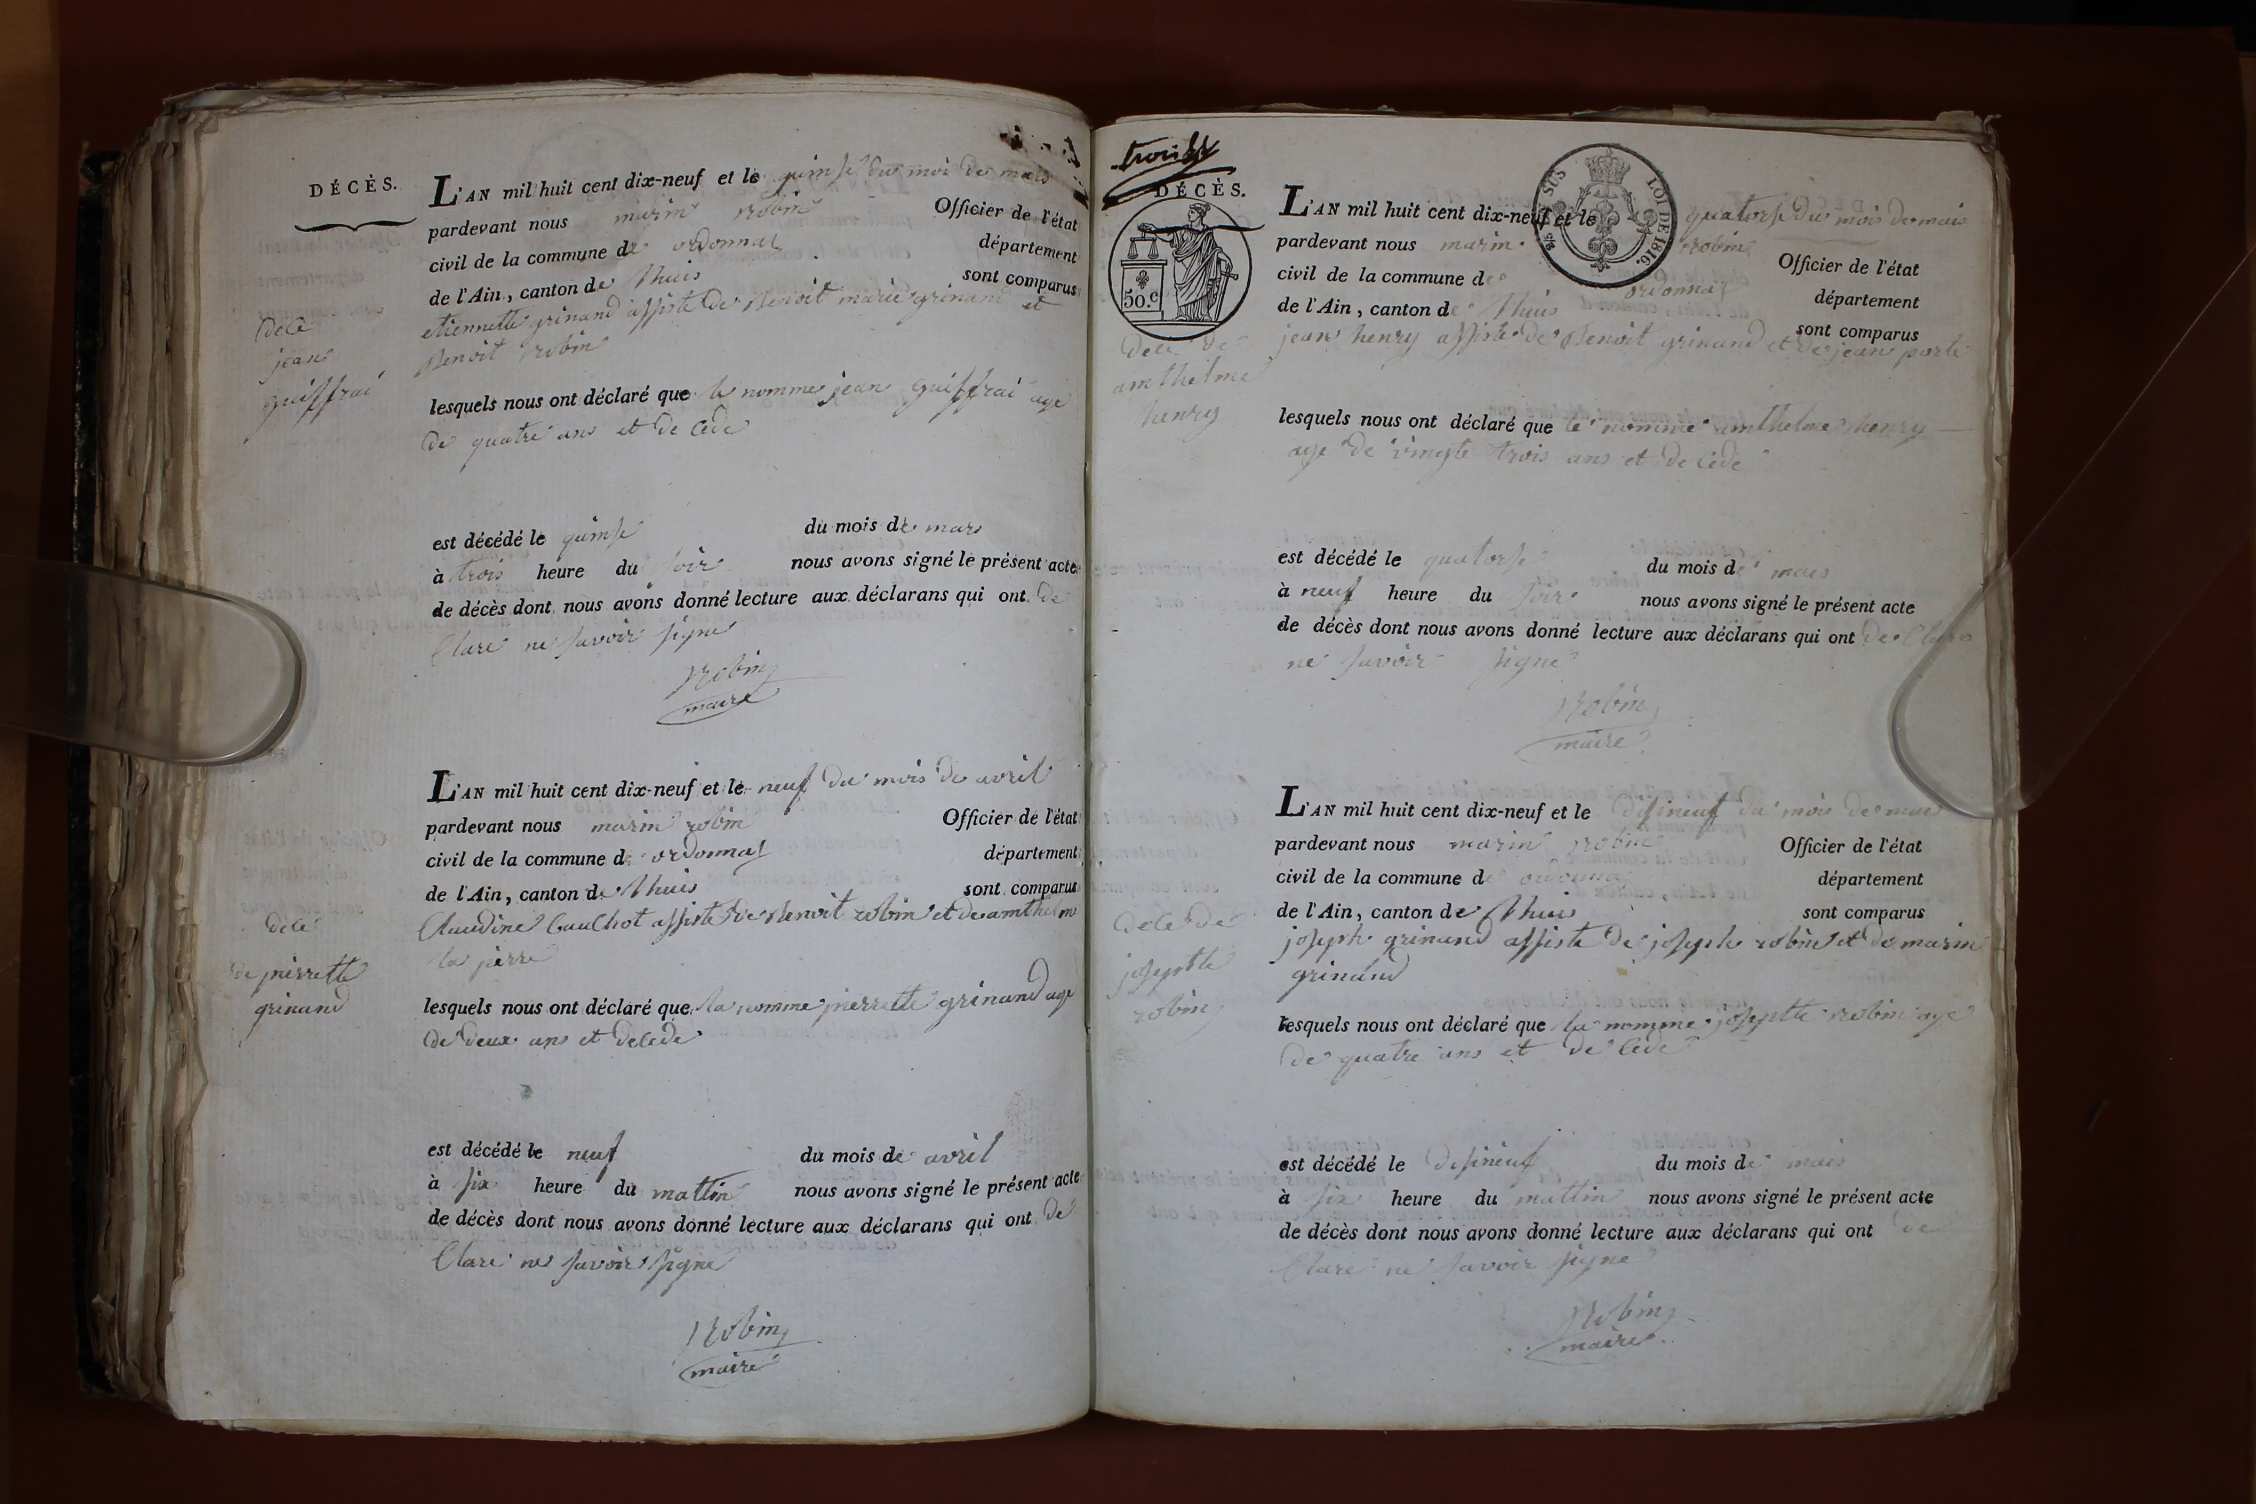 DÉCÈS.
L'AN mil huit cent dix-neuf et le quinse du moi de mars
pardevant nous marin robin Officier de l'état
civil de la commune de ordonnaz département
de l'Ain, canton de lhuis sont comparus
etiennette grinand assiste de Benoit marie grinand et
Benoit robin
decé
jean
guiffrai
lesquels nous ont déclaré que le nomme jean guiffrai age
de quatre ans et de cede
est décédé le quinse du mois de mars
à trois heure du soir nous avons signé le présent acte
de décès dont nous avons donné lecture aux déclarans qui ont de
Clare ne savoir signe
Robin
maire
L'AN mil huit cent dix-neuf et le neuf du mois de avril
pardevant nous marin robin Officier de l'état
civil de la commune de ordonnaz département
de l'Ain, canton de lhuis sont comparus
Claudine Cauchot assiste de Benoit robin et de amthelme
la pierre
decé
de pierrette
grinand
lesquels nous ont déclaré que la nomme pierrette grinand age
de deux ans et decede
est décédé le neuf du mois de avril
à six heure du mattin nous avons signé le présent acte
de décès dont nous avons donné lecture aux déclarans qui ont de
Clare ne savoir signe
Robin
maire
DÉCÈS.
50.c
SUS
LOI DE 1816.
L'AN mil huit cent dix-neuf et le quatorse du mois de mars
pardevant nous marin robin Officier de l'état
civil de la commune de ordonnaz département
de l'Ain, canton de lhuis sont comparus
jean henry assiste de Benoit grinand et de jean porte
decé de
amthelme
henry
lesquels nous ont déclaré que le nomme amthelme henry
age de vingte trois ans et de cede
est décédé le quatorse du mois de mars
à neuf heure du soir nous avons signé le présent acte
de décès dont nous avons donné lecture aux déclarans qui ont de Clare
ne savoir signe
Robin
maire
L'AN mil huit cent dix-neuf et le disineuf du mois de mars
pardevant nous marin robin Officier de l'état
civil de la commune de ordonnaz département
de l'Ain, canton de lhuis sont comparus
joseph grinand assiste de joseph robin et de marin
grinand
decé de
josephte
robin
lesquels nous ont déclaré que la nomme josephte robin age
de quatre ans et de cede
est décédé le disineuf du mois de mars
à six heure du mattin nous avons signé le présent acte
de décès dont nous avons donné lecture aux déclarans qui ont de
Clare ne savoir signe
Robin
maire